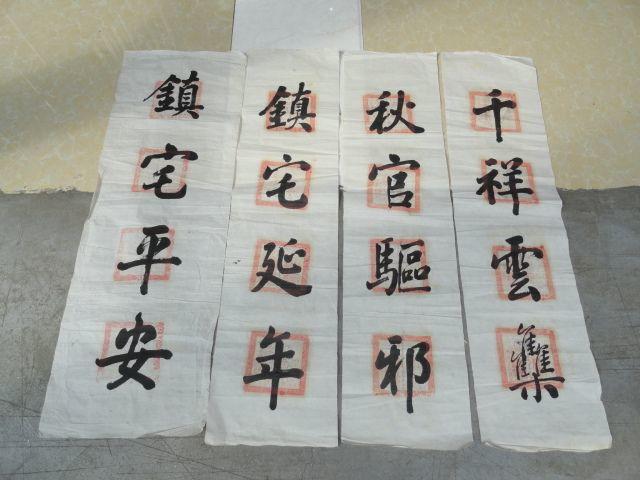 千祥雲雧
秋官驅邪
鎮宅延年
鎮宅平安